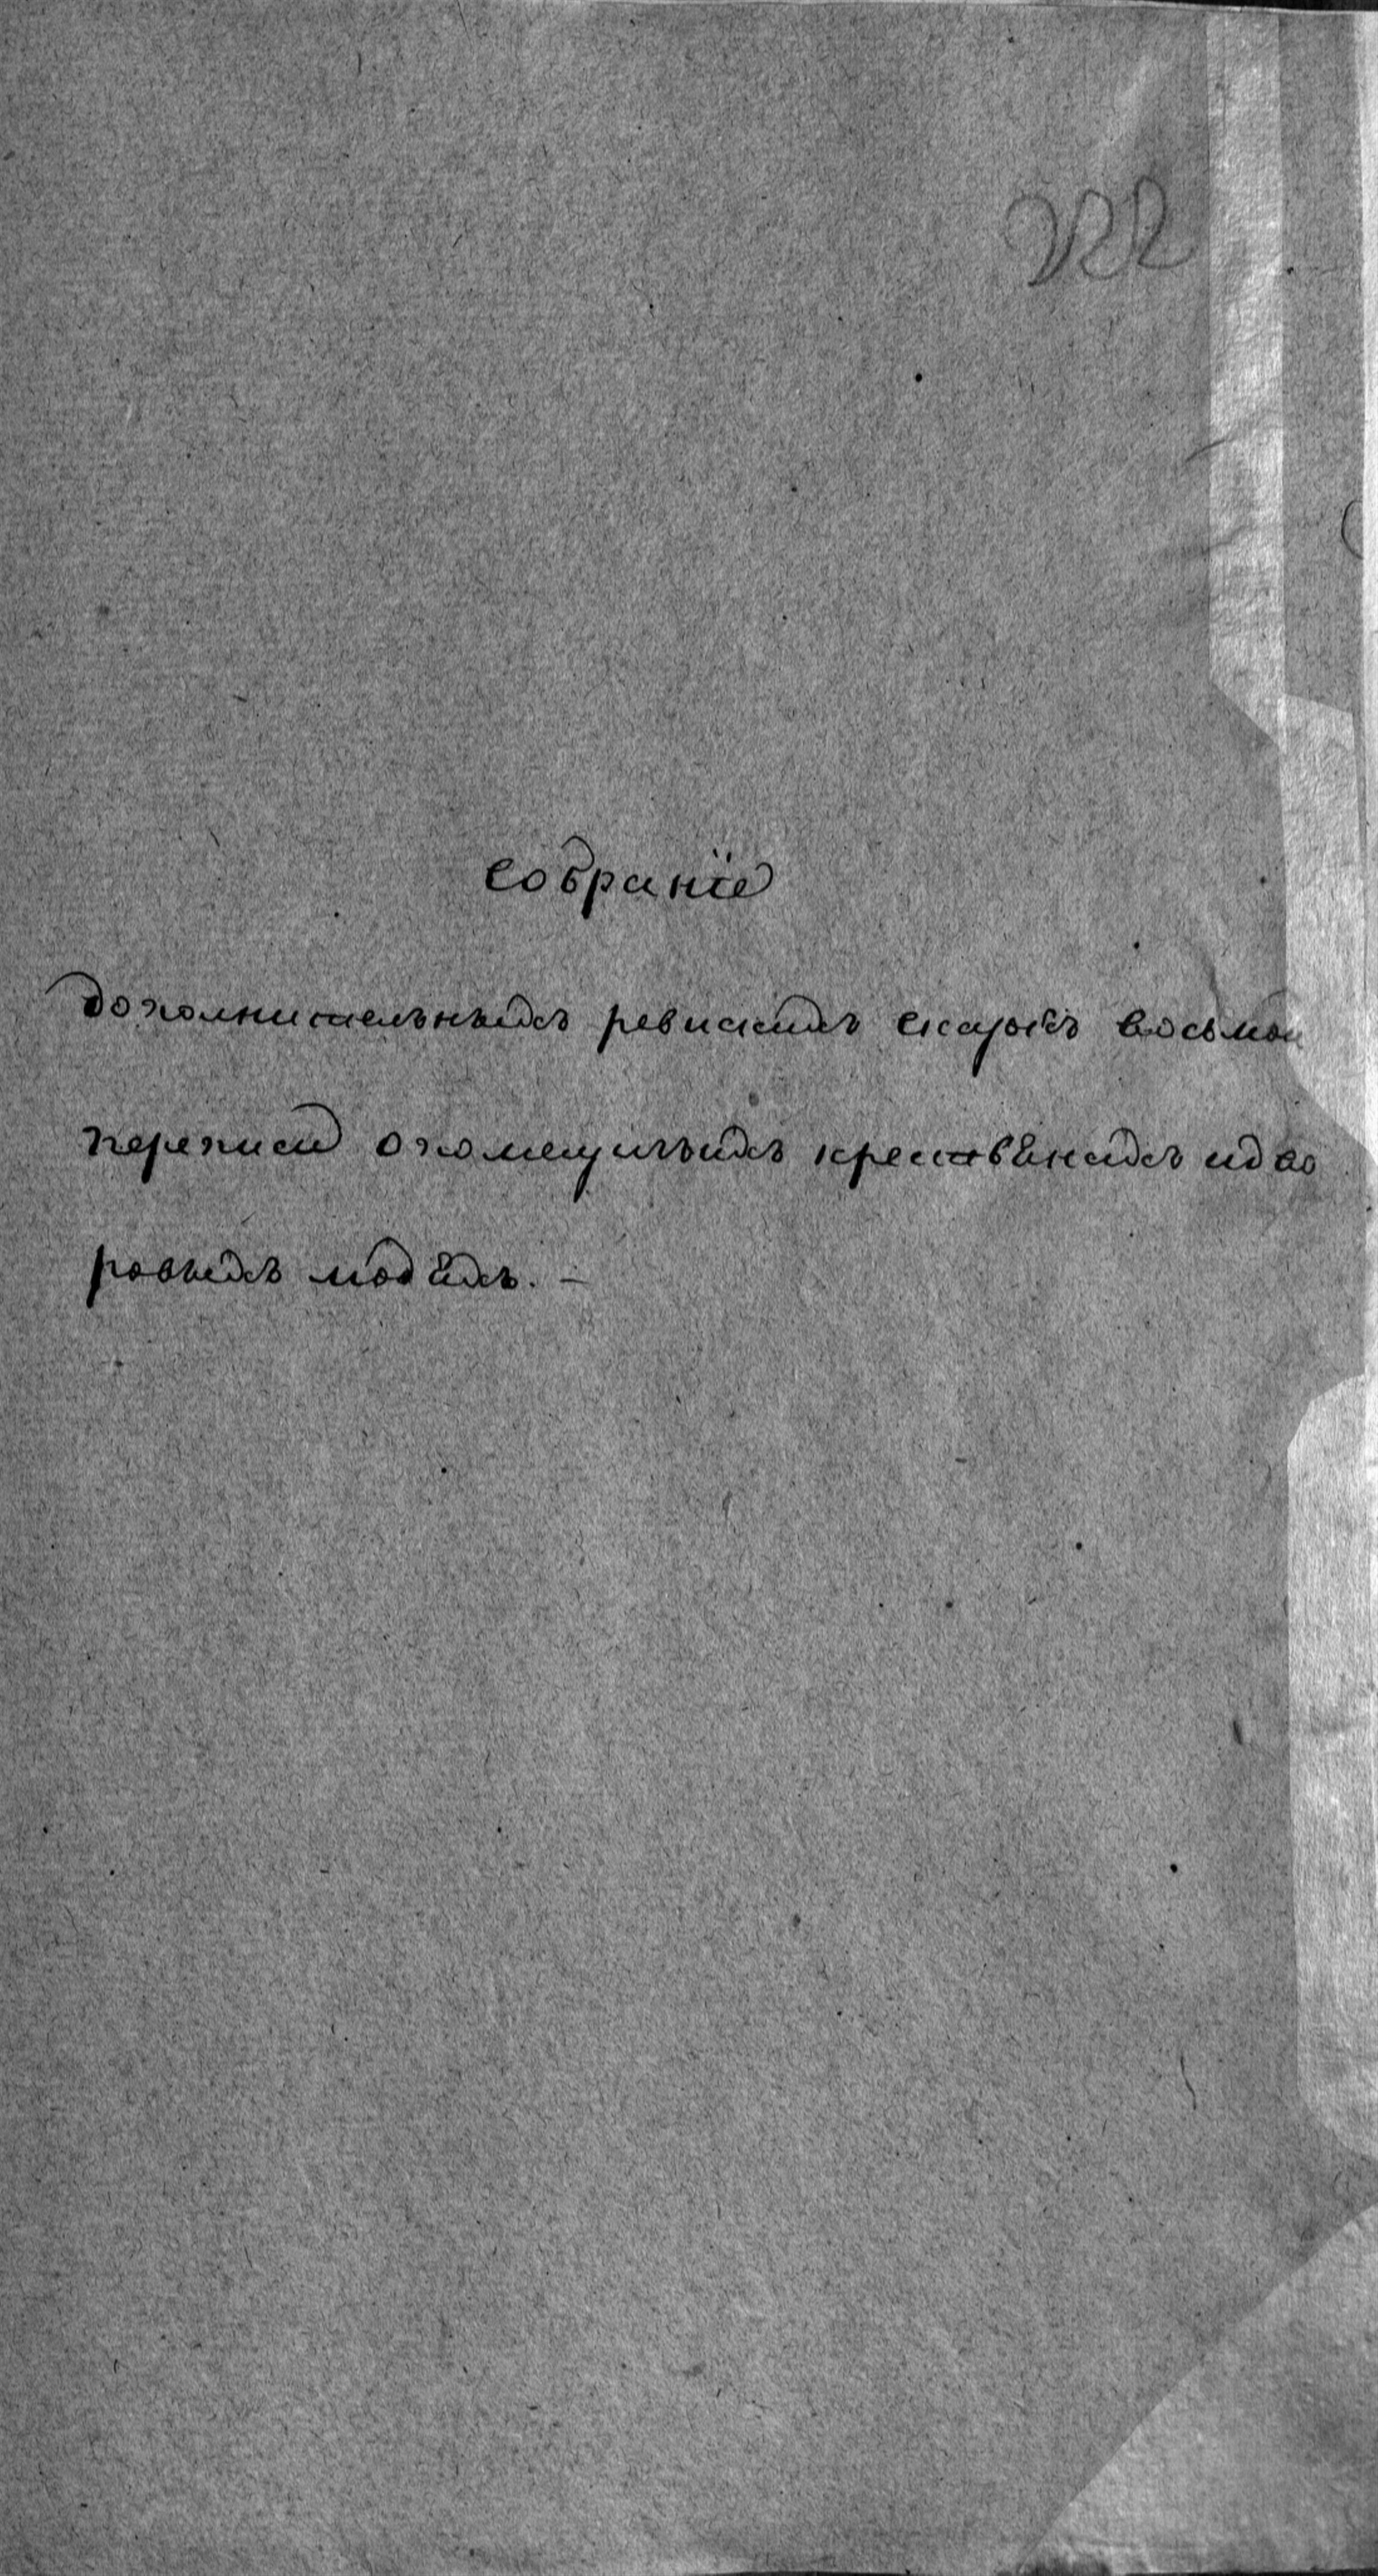 222
Собраніе
дополнительныхъ ревискихъ сказокъ восьмой
переписи опомещичьихъ крестьянахъ идво
ровыхъ людяхъ. –